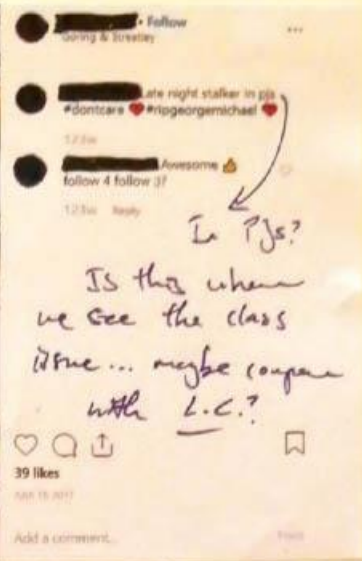 • Follow
Goring & Streatley
Late night stalker in pjs
#dontcare ❤️ #ripgeorgemichael ❤️
123w
Awesome 👍
follow 4 follow 3?
123w Reply
In PJs?
Is this where
we see the class
issue... maybe compare
with L.C.?
39 likes
2017
Add a comment...
Post